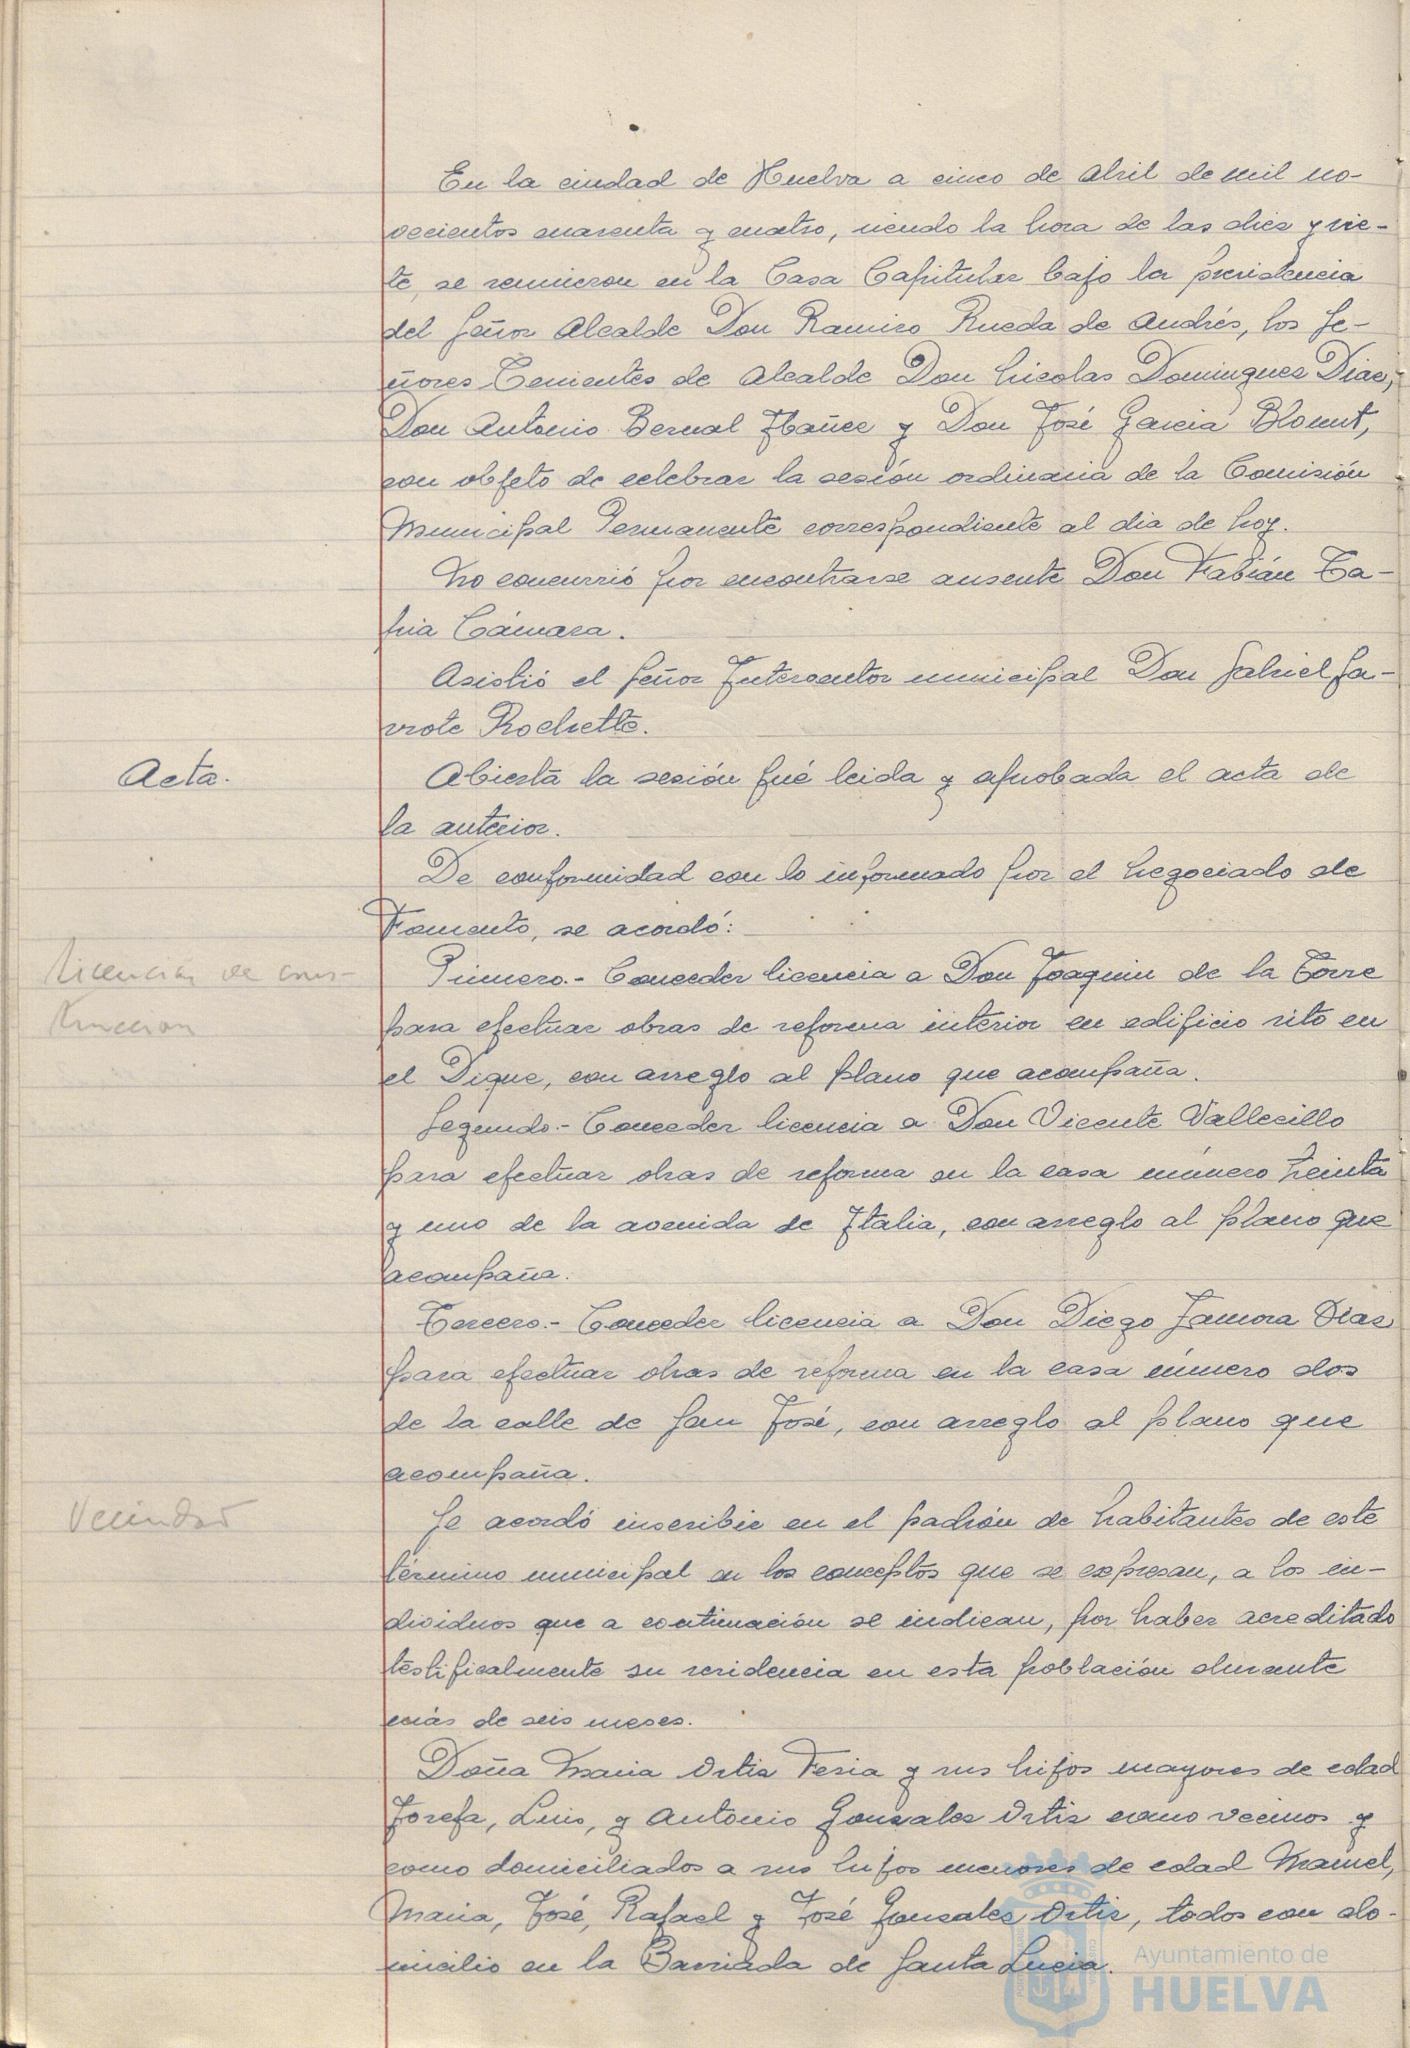 En la ciudad de Huelva a cinco de Abril de mil no-
vecientos cuarenta y cuatro, siendo la hora de las diez y sie-
te, se reunieron en la Casa Capitular bajo la presidencia
del Señor Alcalde Don Ramiro Rueda de Andrés, los Se-
ñores Tenientes de Alcalde Don Nicolas Dominguez Diaz,
Don Antonio Bernal Ibañez y Don José Garcia Blomut,
con objeto de celebrar la sesión ordinaria de la Comisión
Municipal Permanente correspondiente al dia de hoy.
No concurrió por encontrarse ausente Don Fabián Ta-
pia Cámara.
Asistió el Señor Interventor municipal Don Gabriel Ga-
vrote Rochette.
Acta.
Abierta la sesión fué leida y aprobada el acta de
la anterior.
De conformidad con lo informado por el Negociado de
Fomento, se acordó:
Licencias de cons-
truccion
Primero.- Conceder licencia a Don Joaquin de la Torre
para efectuar obras de reforma interior en edificio sito en
el Dique, con arreglo al plano que acompaña.
Segundo.- Conceder licencia a Don Vicente Vallecillo
para efectuar obras de reforma en la casa número treinta
y uno de la avenida de Italia, con arreglo al plano que
acompaña.
Tercero.- Conceder licencia a Don Diego Zamora Diaz
para efectuar obras de reforma en la casa número dos
de la calle de San José, con arreglo al plano que
acompaña.
Vecindad
Se acordó inscribir en el padrón de habitantes de este
término municipal en los conceptos que se expresan, a los in-
dividuos que a continuación se indican, por haber acreditado
testificalmente su residencia en esta población durante
más de seis meses.
Doña Maria Ortiz Feria y sus hijos mayores de edad
Josefa, Luis, y Antonio Gonzalez Ortiz como vecinos y
como domiciliados a sus hijos menores de edad Manuel,
Maria, José, Rafael y José Gonzalez Ortiz, todos con do-
micilio en la Barriada de Santa Lucia.
Ayuntamiento de
HUELVA